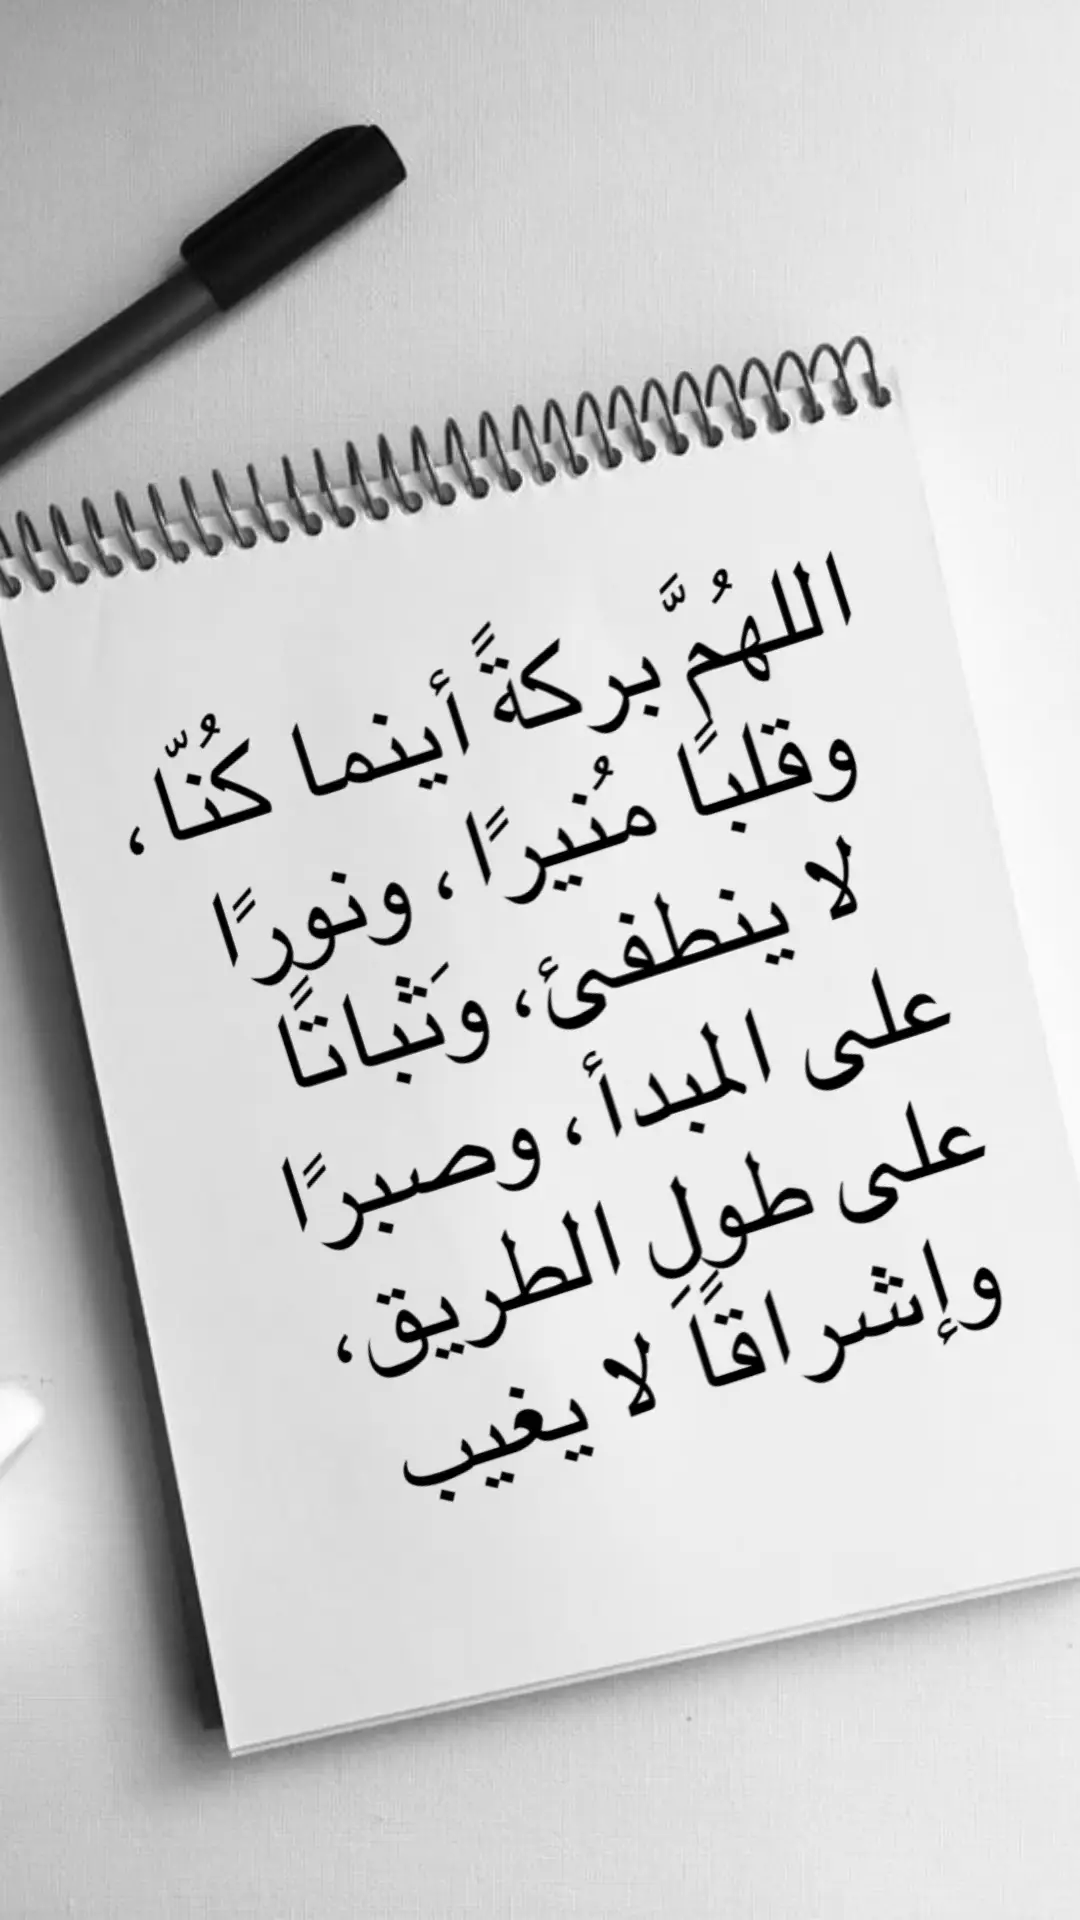 اللهُمَّ بركةً أينما كُنّا ،
وقلبًا مُنيرًا ، ونورًا
لا ينطفئ، وَثباتًا
على المبدأ ، وصبرًا
على طولِ الطريق،
وإشراقًا لا يغيب